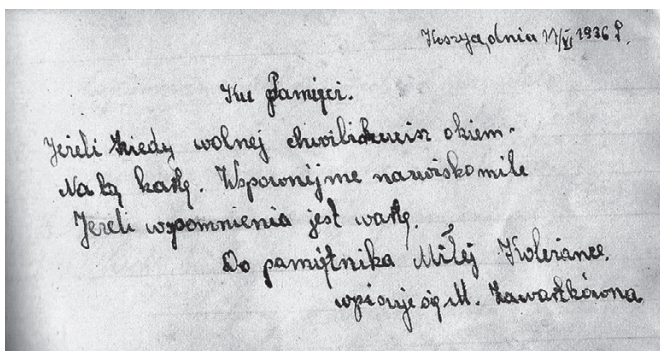 dnia 17/VI 1936 r.
Ku pamięci.
Jeżeli kiedy wolnej chwili okiem.
Na tą kartę. Wspomnij me nazwisko mile
Jeżeli wspomnienia jest warte.
Do pamiętnika Miłej Koleżance.
wpisuje się M. Zawartkówna